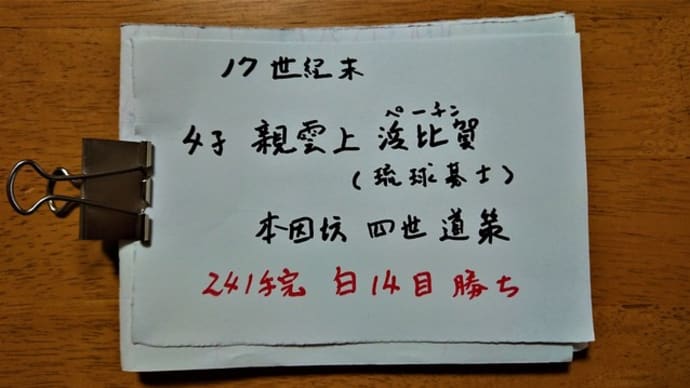 17世紀末
ペーチン
4子 親雲上 浜比賀
(琉球碁士)
本因坊 四世 道策
241手完 白14目 勝ち